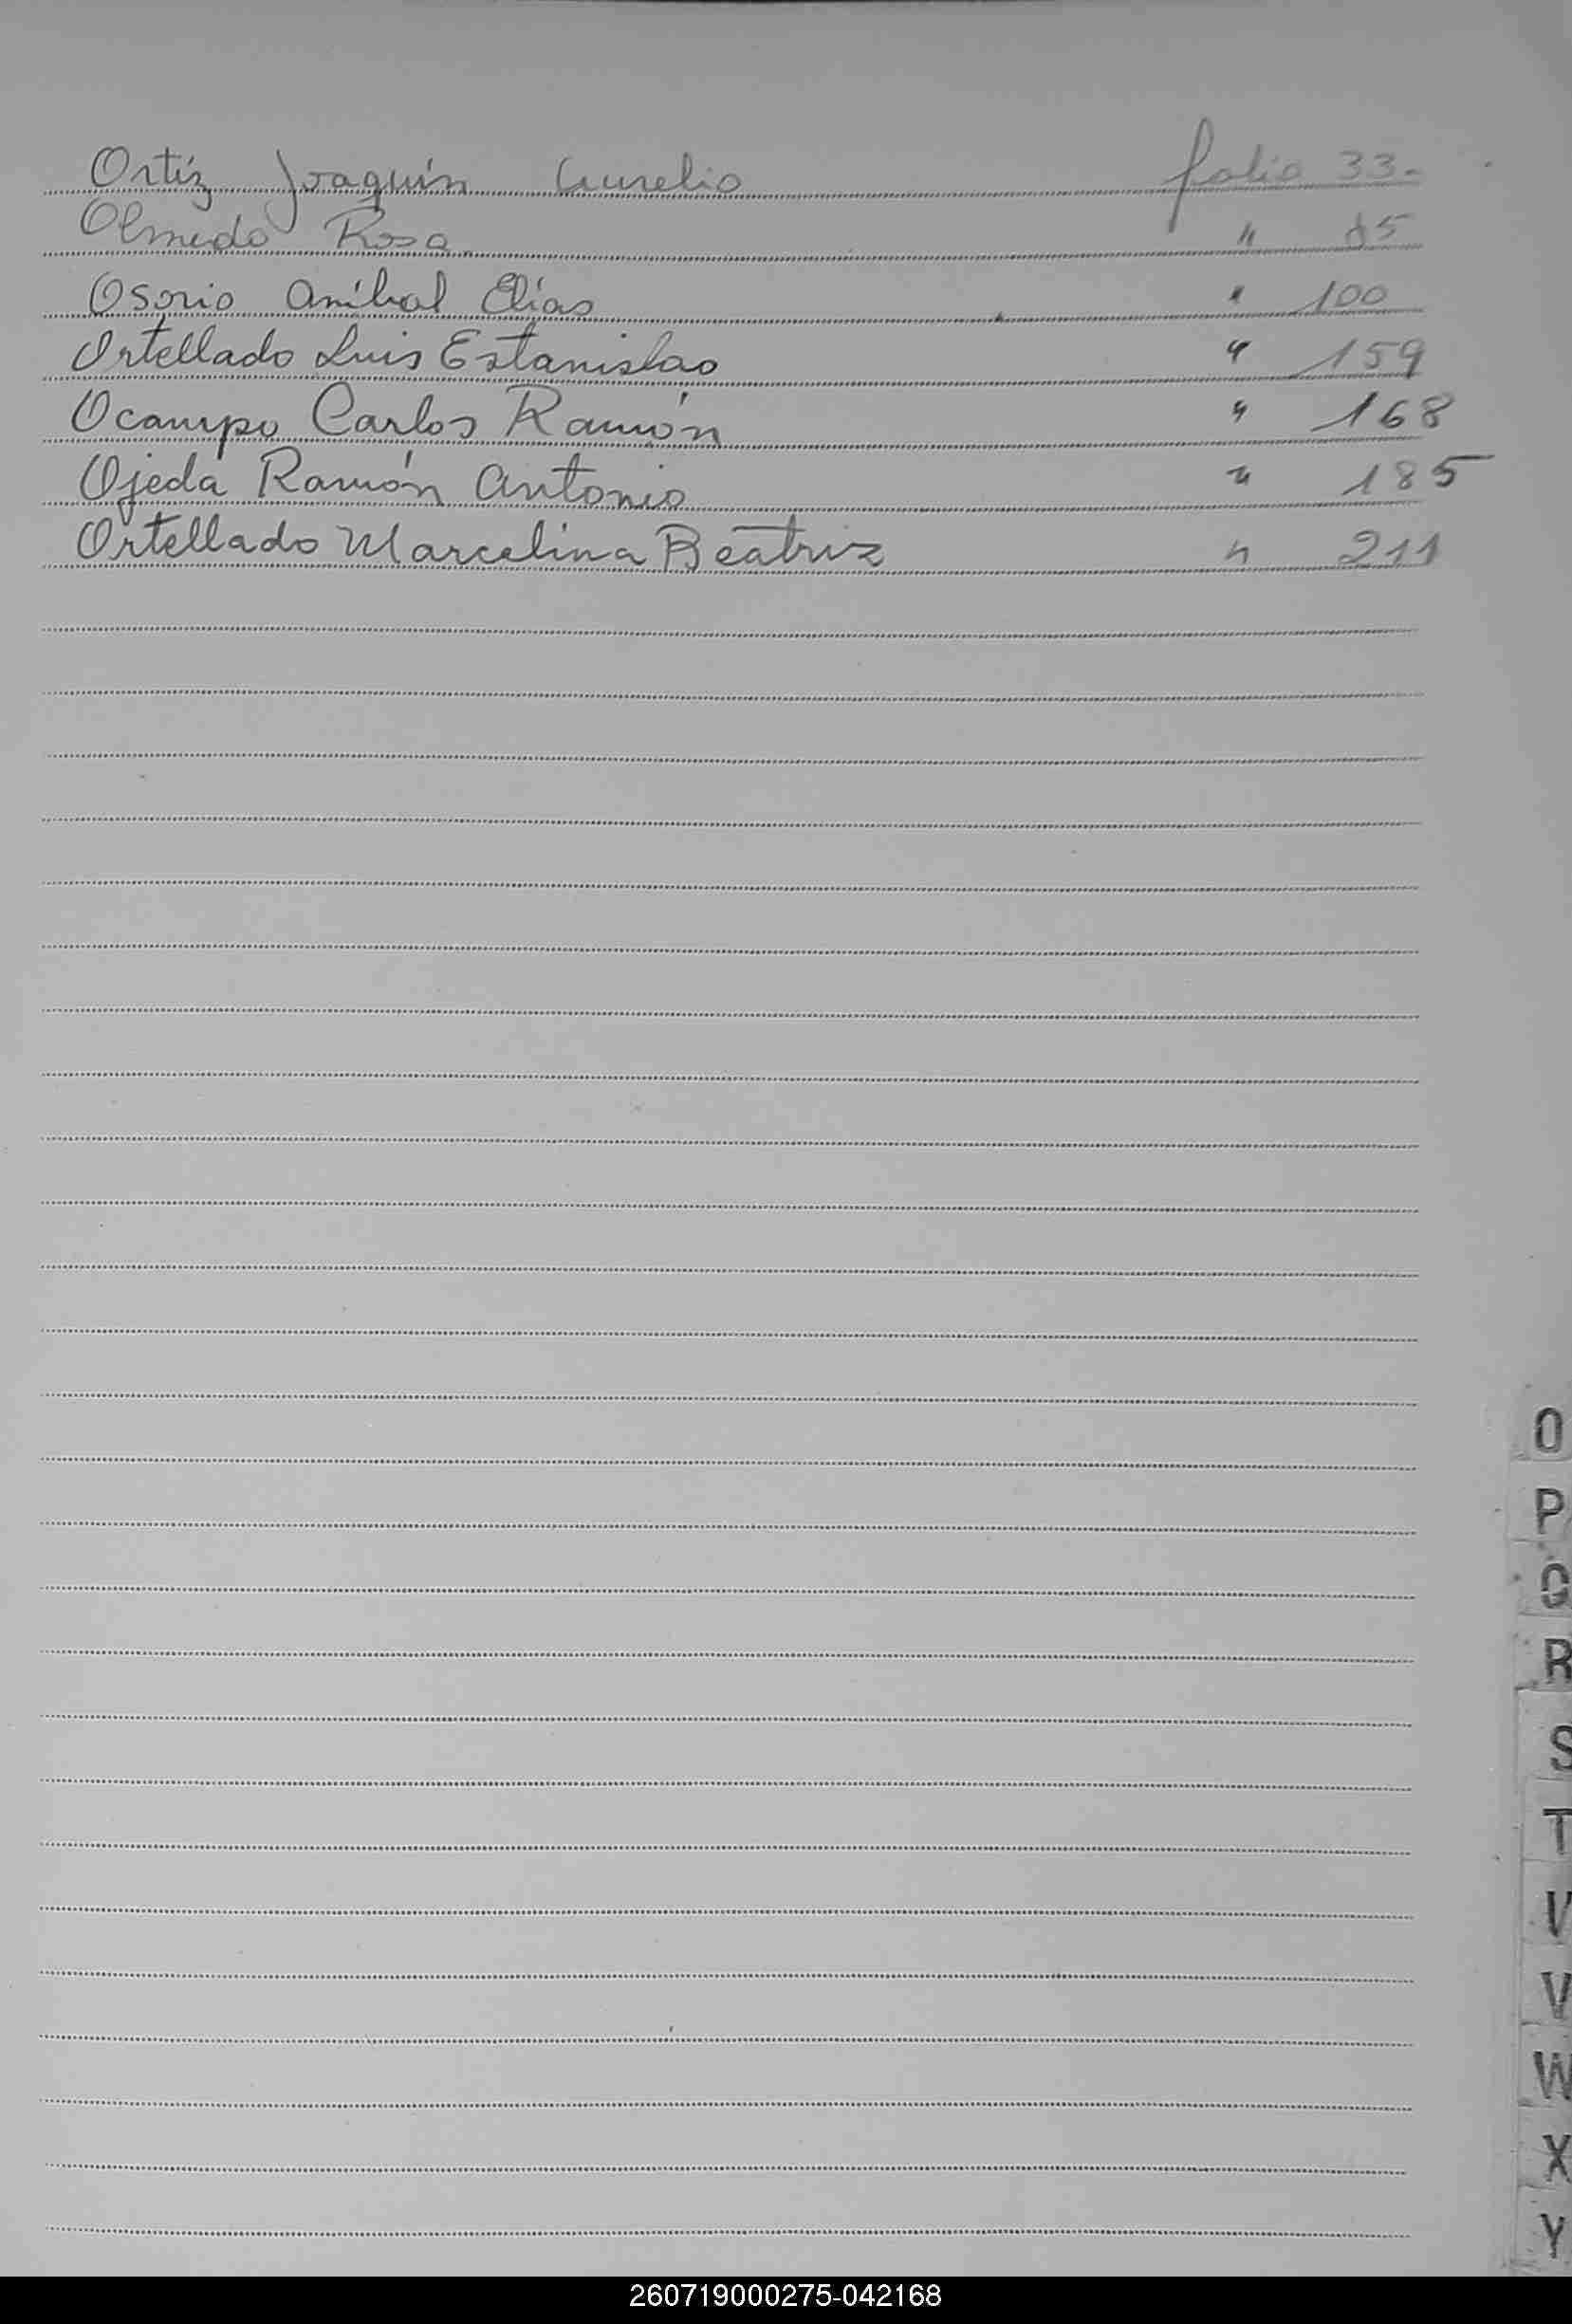 Ortíz Joaquín Aurelio folio 33.-
Olmedo Rosa " 85
Osorio Aníbal Elías " 100
Ortellado Luis Estanislao " 159
Ocampo Carlos Ramón " 168
Ojeda Ramón Antonio " 185
Ortellado Marcelina Beatriz " 211
O
P
Q
R
S
T
U
V
W
X
Y
260719000275-042168